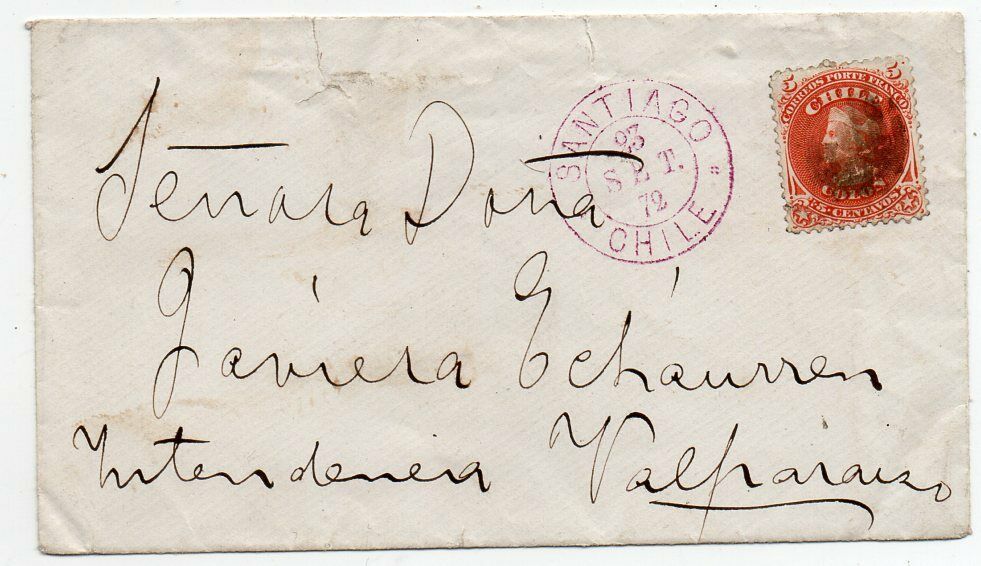 5 5
CORREOS PORTE FRANCO
CHILE
COLON
CENTAVOS
SANTIAGO
23
SET.
72
CHILE
Señora Doña
Javiera Echáurren
Intendencia Valparaiso